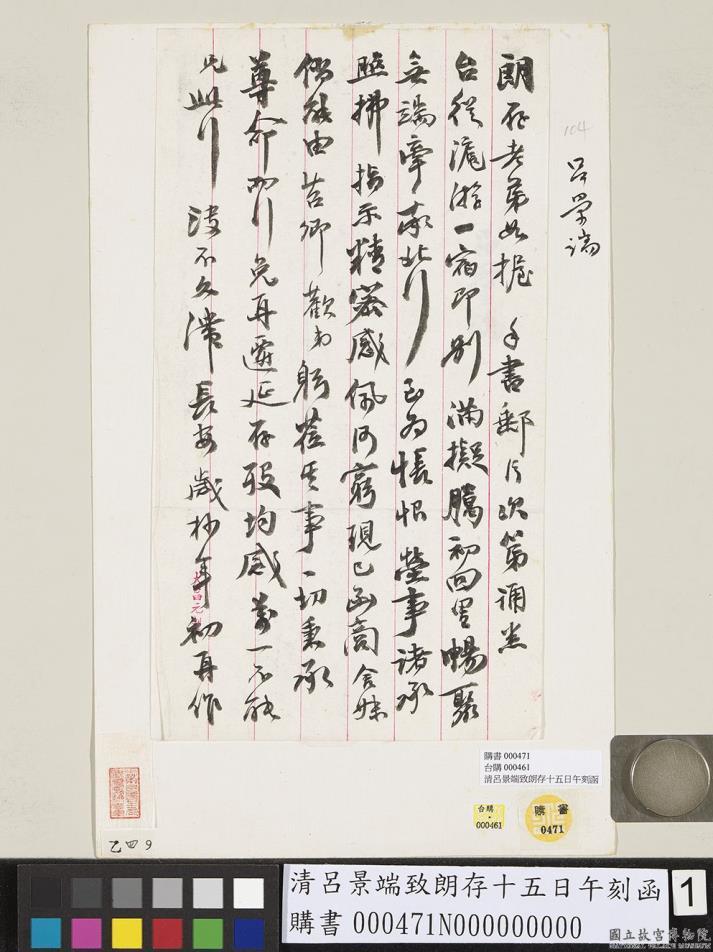 104
呂景端
朗存老弟如握手書郵片次第誦悉
台從滬游一宿即別滿擬臘初回里暢聚
無端牽率北行至為悵恨塋事諸承
照拂指示精密感佩何窮現已函商舍妹
能由苕卿歡弟躬蒞其事一切秉承
尊命而行免再遷延存歿均感萬一不能
凡此行決不久滯長安歲杪年初再作
購書 000471
台購 000461
清呂景端致朗存十五日午刻函
台購
000461
購書
0471
乙四 9
清呂景端致朗存十五日午刻函
購書 000471N000000000
1
國立故宮博物院